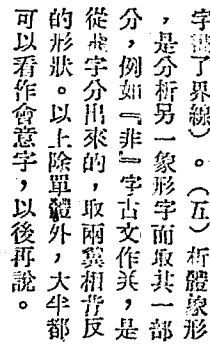 字畫了界線）。（五）析體象形
，是分析另一象形字而取其一部
分，例如『非』字古文作兆，是
從飛字分出來的，取兩翼相背反
的形狀。以上除單體外，大半都
可以看作會意字，以後再說。